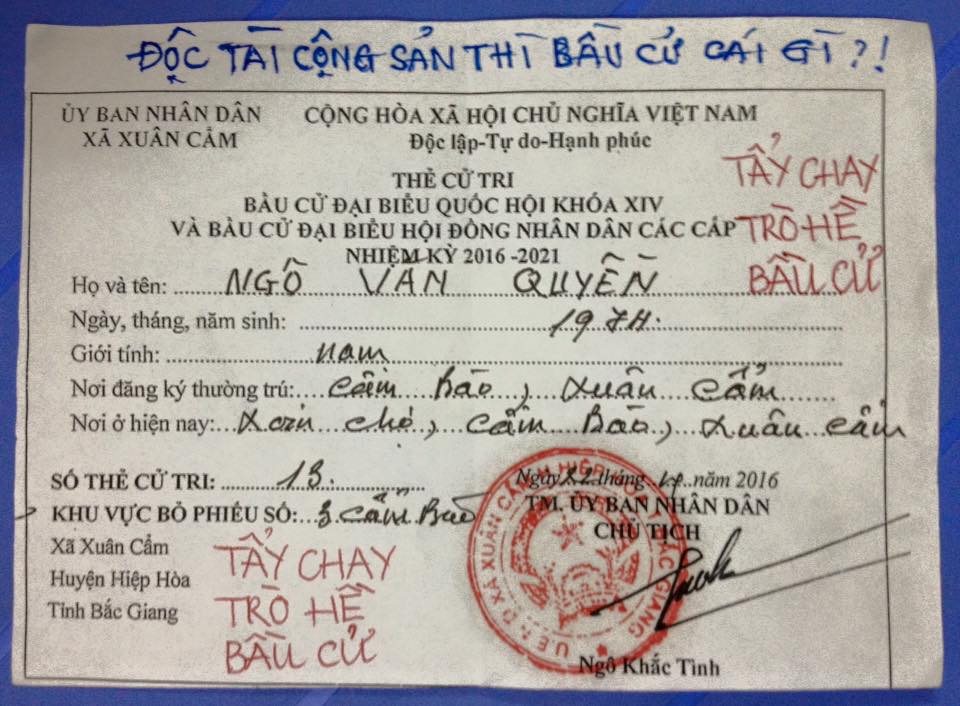 ĐỘC TÀI CỘNG SẢN THÌ BẦU CỬ CÁI GÌ?!
ỦY BAN NHÂN DÂN
XÃ XUÂN CẨM
CỘNG HÒA XÃ HỘI CHỦ NGHĨA VIỆT NAM
Độc lập-Tự do-Hạnh phúc
THẺ CỬ TRI
BẦU CỬ ĐẠI BIỂU QUỐC HỘI KHÓA XIV
VÀ BẦU CỬ ĐẠI BIỂU HỘI ĐỒNG NHÂN DÂN CÁC CẤP
NHIỆM KỲ 2016 -2021
TẨY CHAY
TRÒ HỀ
BẦU CỬ
Họ và tên: NGÔ VĂN QUYỀN
Ngày, tháng, năm sinh: 1974.
Giới tính: nam
Nơi đăng ký thường trú: Cẩm Bào, Xuân Cẩm
Nơi ở hiện nay: Xóm chợ, Cẩm Bào, Xuân Cẩm
SỐ THẺ CỬ TRI: 13.
KHU VỰC BỎ PHIẾU SỐ: 3 Cẩm Bào
Xã Xuân Cẩm
Huyện Hiệp Hòa
Tỉnh Bắc Giang
TẨY CHAY
TRÒ HỀ
BẦU CỬ
Ngày 22 tháng 4 năm 2016
TM. ỦY BAN NHÂN DÂN
CHỦ TỊCH
U.B.N.D XÃ XUÂN CẨM HIỆP HÒA BẮC GIANG
Ngô Khắc Tình